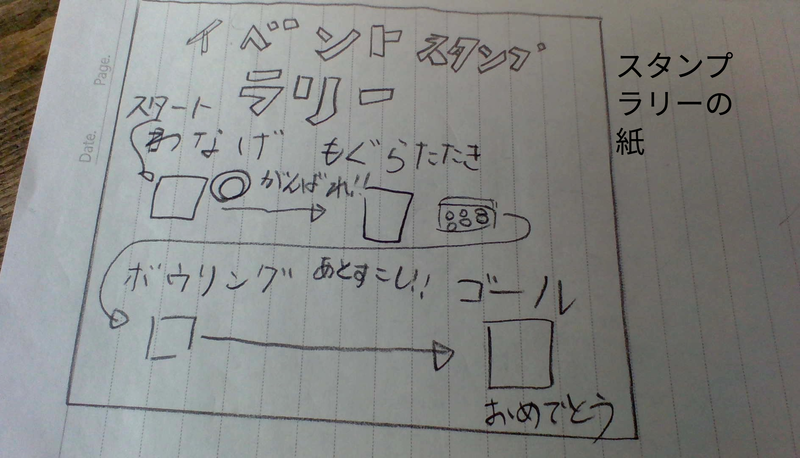 Date.
Page.
イベント スタンプ
ラリー
スタート
わなげ
もぐらたたき
がんばれ!!
ボウリング
あとすこし!!
ゴール
おめでとう
スタンプ
ラリーの
紙